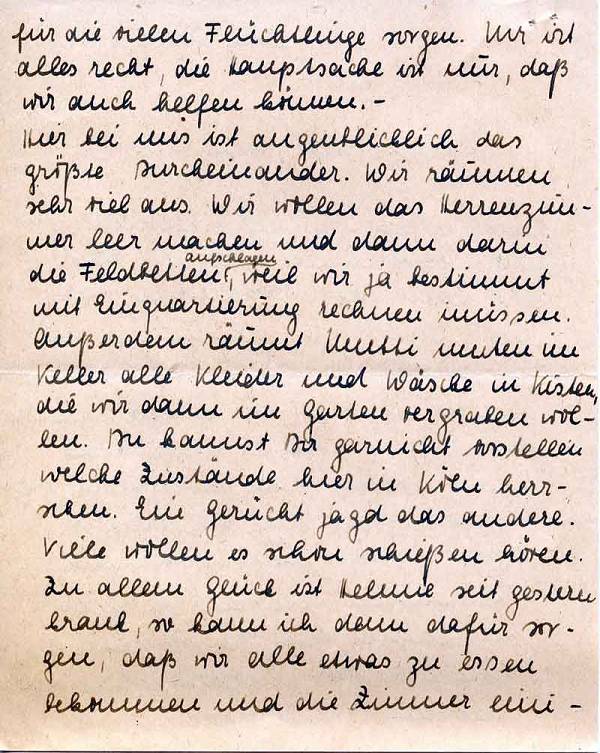 für die vielen Flüchtlinge sorgen. Mir ist
alles recht, die Hauptsache ist nur, daß
wir auch helfen können.-
Hier bei uns ist augenblicklich das
größte Durcheinander. Wir räumen
sehr viel aus. Wir wollen das Herrenzim-
mer leer machen und dann darin
aufschlagen
die Feldbetten, weil wir ja bestimmt
mit Einquartierung rechnen müssen.
Außerdem räumt Mutti unten im
Keller alle Kleider und Wäsche in Kisten,
die wir dann im Garten vergraben wol-
len. Du kannst Dir garnicht vorstellen
welche Zustände hier in Köln herr-
schen. Ein Gerücht jagd das andere.
Viele wollen es schon schießen hören.
Zu allem Glück ist Helmi seit gestern
krank, so kann ich denn dafür sor-
gen, daß wir alle etwas zu essen
bekommen und die Zimmer eini-